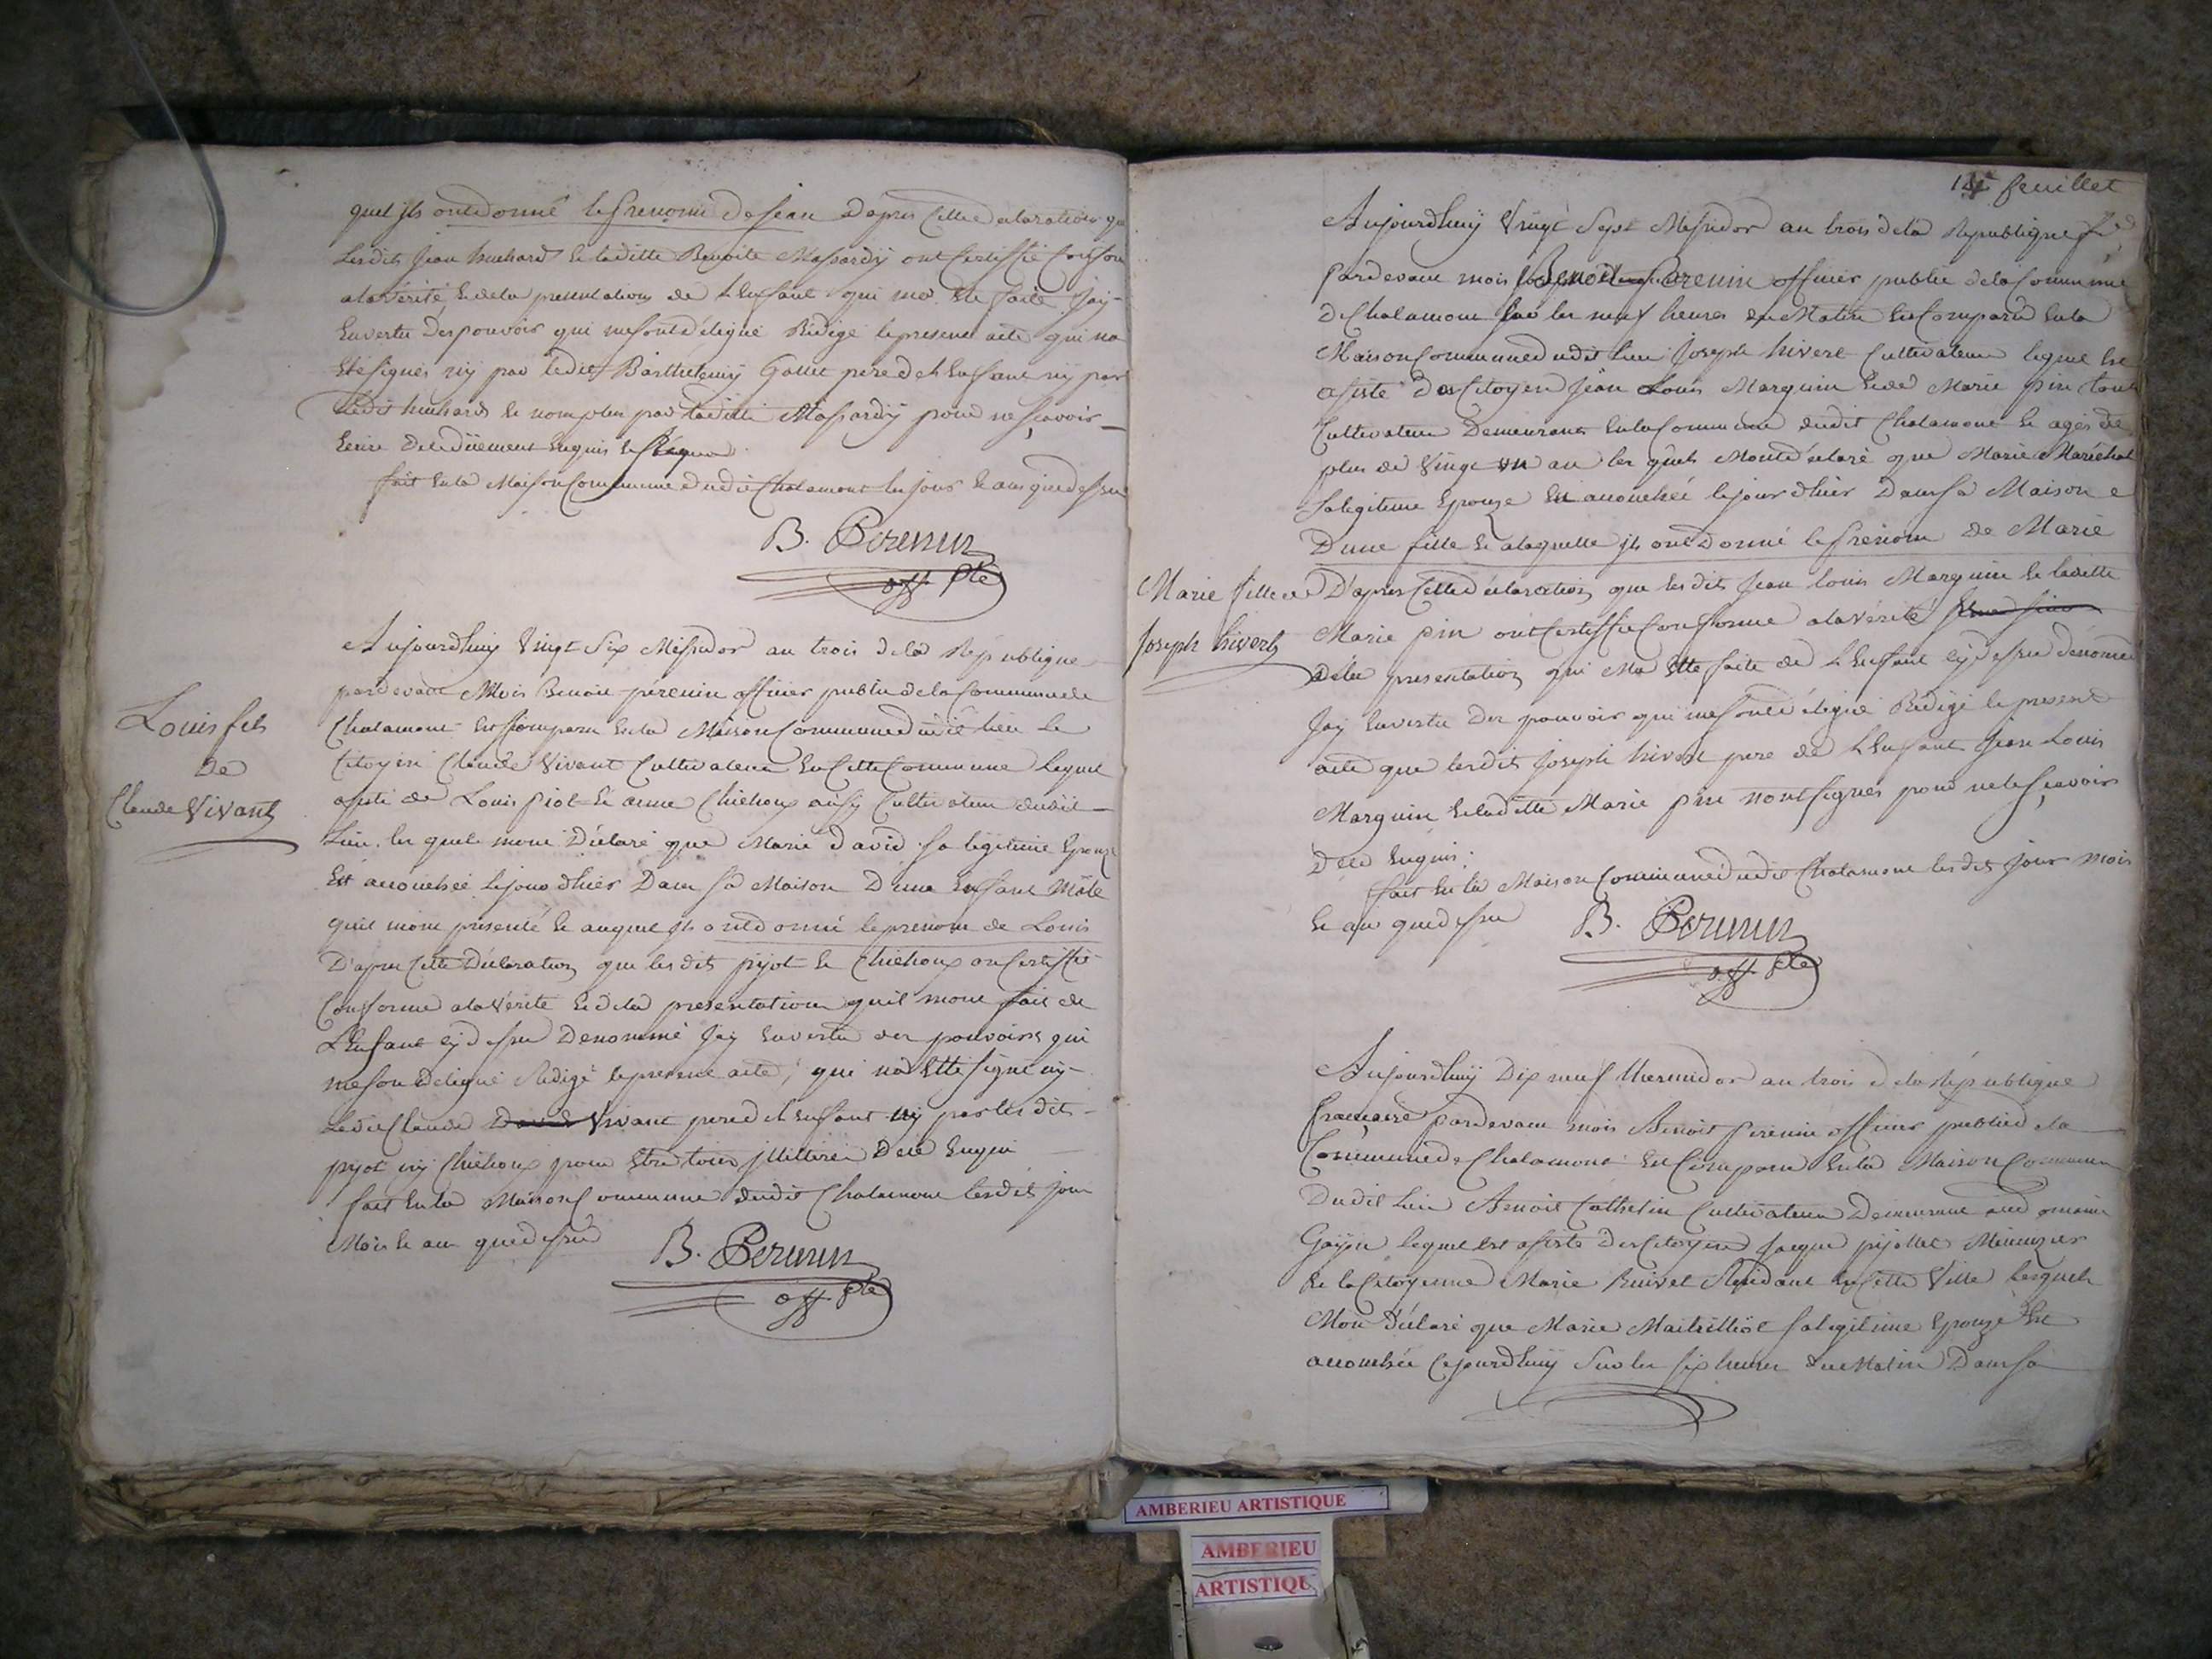 quel jls ont donné le prenom de Jean d'apres cette declaration que
lesdits Jean huchard & laditte Benoite Massardÿ ont certiffié conforme
a la vérité & de la presentation de L'enfant qui ma été faite Jay
en vertu des pouvoir qui me sont délégué Rédigé le present acte qui na
été signés nÿ par ledit Barthelemÿ pere de L'enfant nÿ par
ledit huchard & non plus par laditte Massardÿ pour ne sçavoir
Ecrire de ce duement enquis &
fait en la Maison Commune dudit Chalamont les jour & an que dessus
B. Perenin
off. plic
Aujourdhuÿ Vingt Six Messidor an trois de la République
pardevant Mois Benoit perenin officier public de la Commune de
Chalamont est comparu en la Maison Commune dudit lieu le
Citoyen Claude Vivant Cultivateur en cette Commune lequel
assisté de Louis pijot & anne Chichoux aussÿ Cultivateur dudit
Lieu. les quels mont Déclaré que Marie David sa légitime Epouze
Est accouchée le jour dhier Dans sa Maison D'une Enfant Mâle
quil mont présenté & auquel jls ont donné le prenom de Louis
D'apres cette Déclaration que lesdits pijot & Chichoux on Certiffié
Conforme a la Vérité & de la presentation quil mont fait de
L'Enfant cÿ dessus Denommé Jaÿ en vertu des pouvoirs qui
me sont délégué Redigé le present acte, qui na Etté signé nÿ
Ledit Claude David Vivant pere de L'enfant nÿ par lesdits
pijot nÿ Chichoux pour Etre tous jllitterés De ce Enquis
fait en la Maison Commune dudit Chalamont lesdits jour
Mois & an que dessus
B. Perenin
off. plic
Louis fils
De
Claude Vivant
14e feuillet
Aujourdhuÿ Vingt Sept Messidor an trois de la République
pardevant mois Benoit Perenin officier public de la Commune
de Chalamont sur les neuf heures du Matin Est Comparu en la
Maison Commune dudit lieu Joseph hivert Cultivateur lequel est
assisté des Citoyens Jean Louis Marguin & de Marie pin tous
Cultivateur Demeurants en la Commune dudit Chalamont & agés de
plus de Vingt un an les quels Mont Déclaré que Marie Maréchal
sa légitime Epouze Est accouchée le jour dhier Dans sa Maison
D'une fille & a laquelle jls ont Donné le prenom de Marie
D'apres cette déclaration que lesdits Jean Louis Marguin & laditte
Marie pin ont Certiffié Conforme a la Vérité
de la presentation qui Ma Etté faite de L'Enfant cÿ dessus dénommé
Jaÿ En vertu des pouvoir qui me sont délégué Rédigé le present
acte que lesdits Joseph hivert pere de L'Enfant Jean Louis
Marguin & laditte Marie pin nont signés pour ne le sçavoir
De ce Enquis.
fait En la Maison Commune dudit Chalamont lesdits jour mois
& an que dessus
B. Perenin
off. plic
Marie fille de
Joseph hivert
Aujourdhuÿ Dix neuf thermidor an trois de la République
francaise pardevant mois Benoit perenin officier public de la
Commune de Chalamont Est Comparu En la Maison Commune
Dudit Lieu Benoit Cathelin Cultivateur Demeurant au domaine
Gaÿon lequel est assisté des Citoyens Jacque pijollet Menuzier
& la Citoyenne Marie Résidant en cette Ville lesquels
Mont déclaré que Marie sa légitime Epouze Est
accouchée cejourdhuÿ sur les six heures du Matin Dans sa
AMBERIEU ARTISTIQUE
AMBERIEU
ARTISTIQU